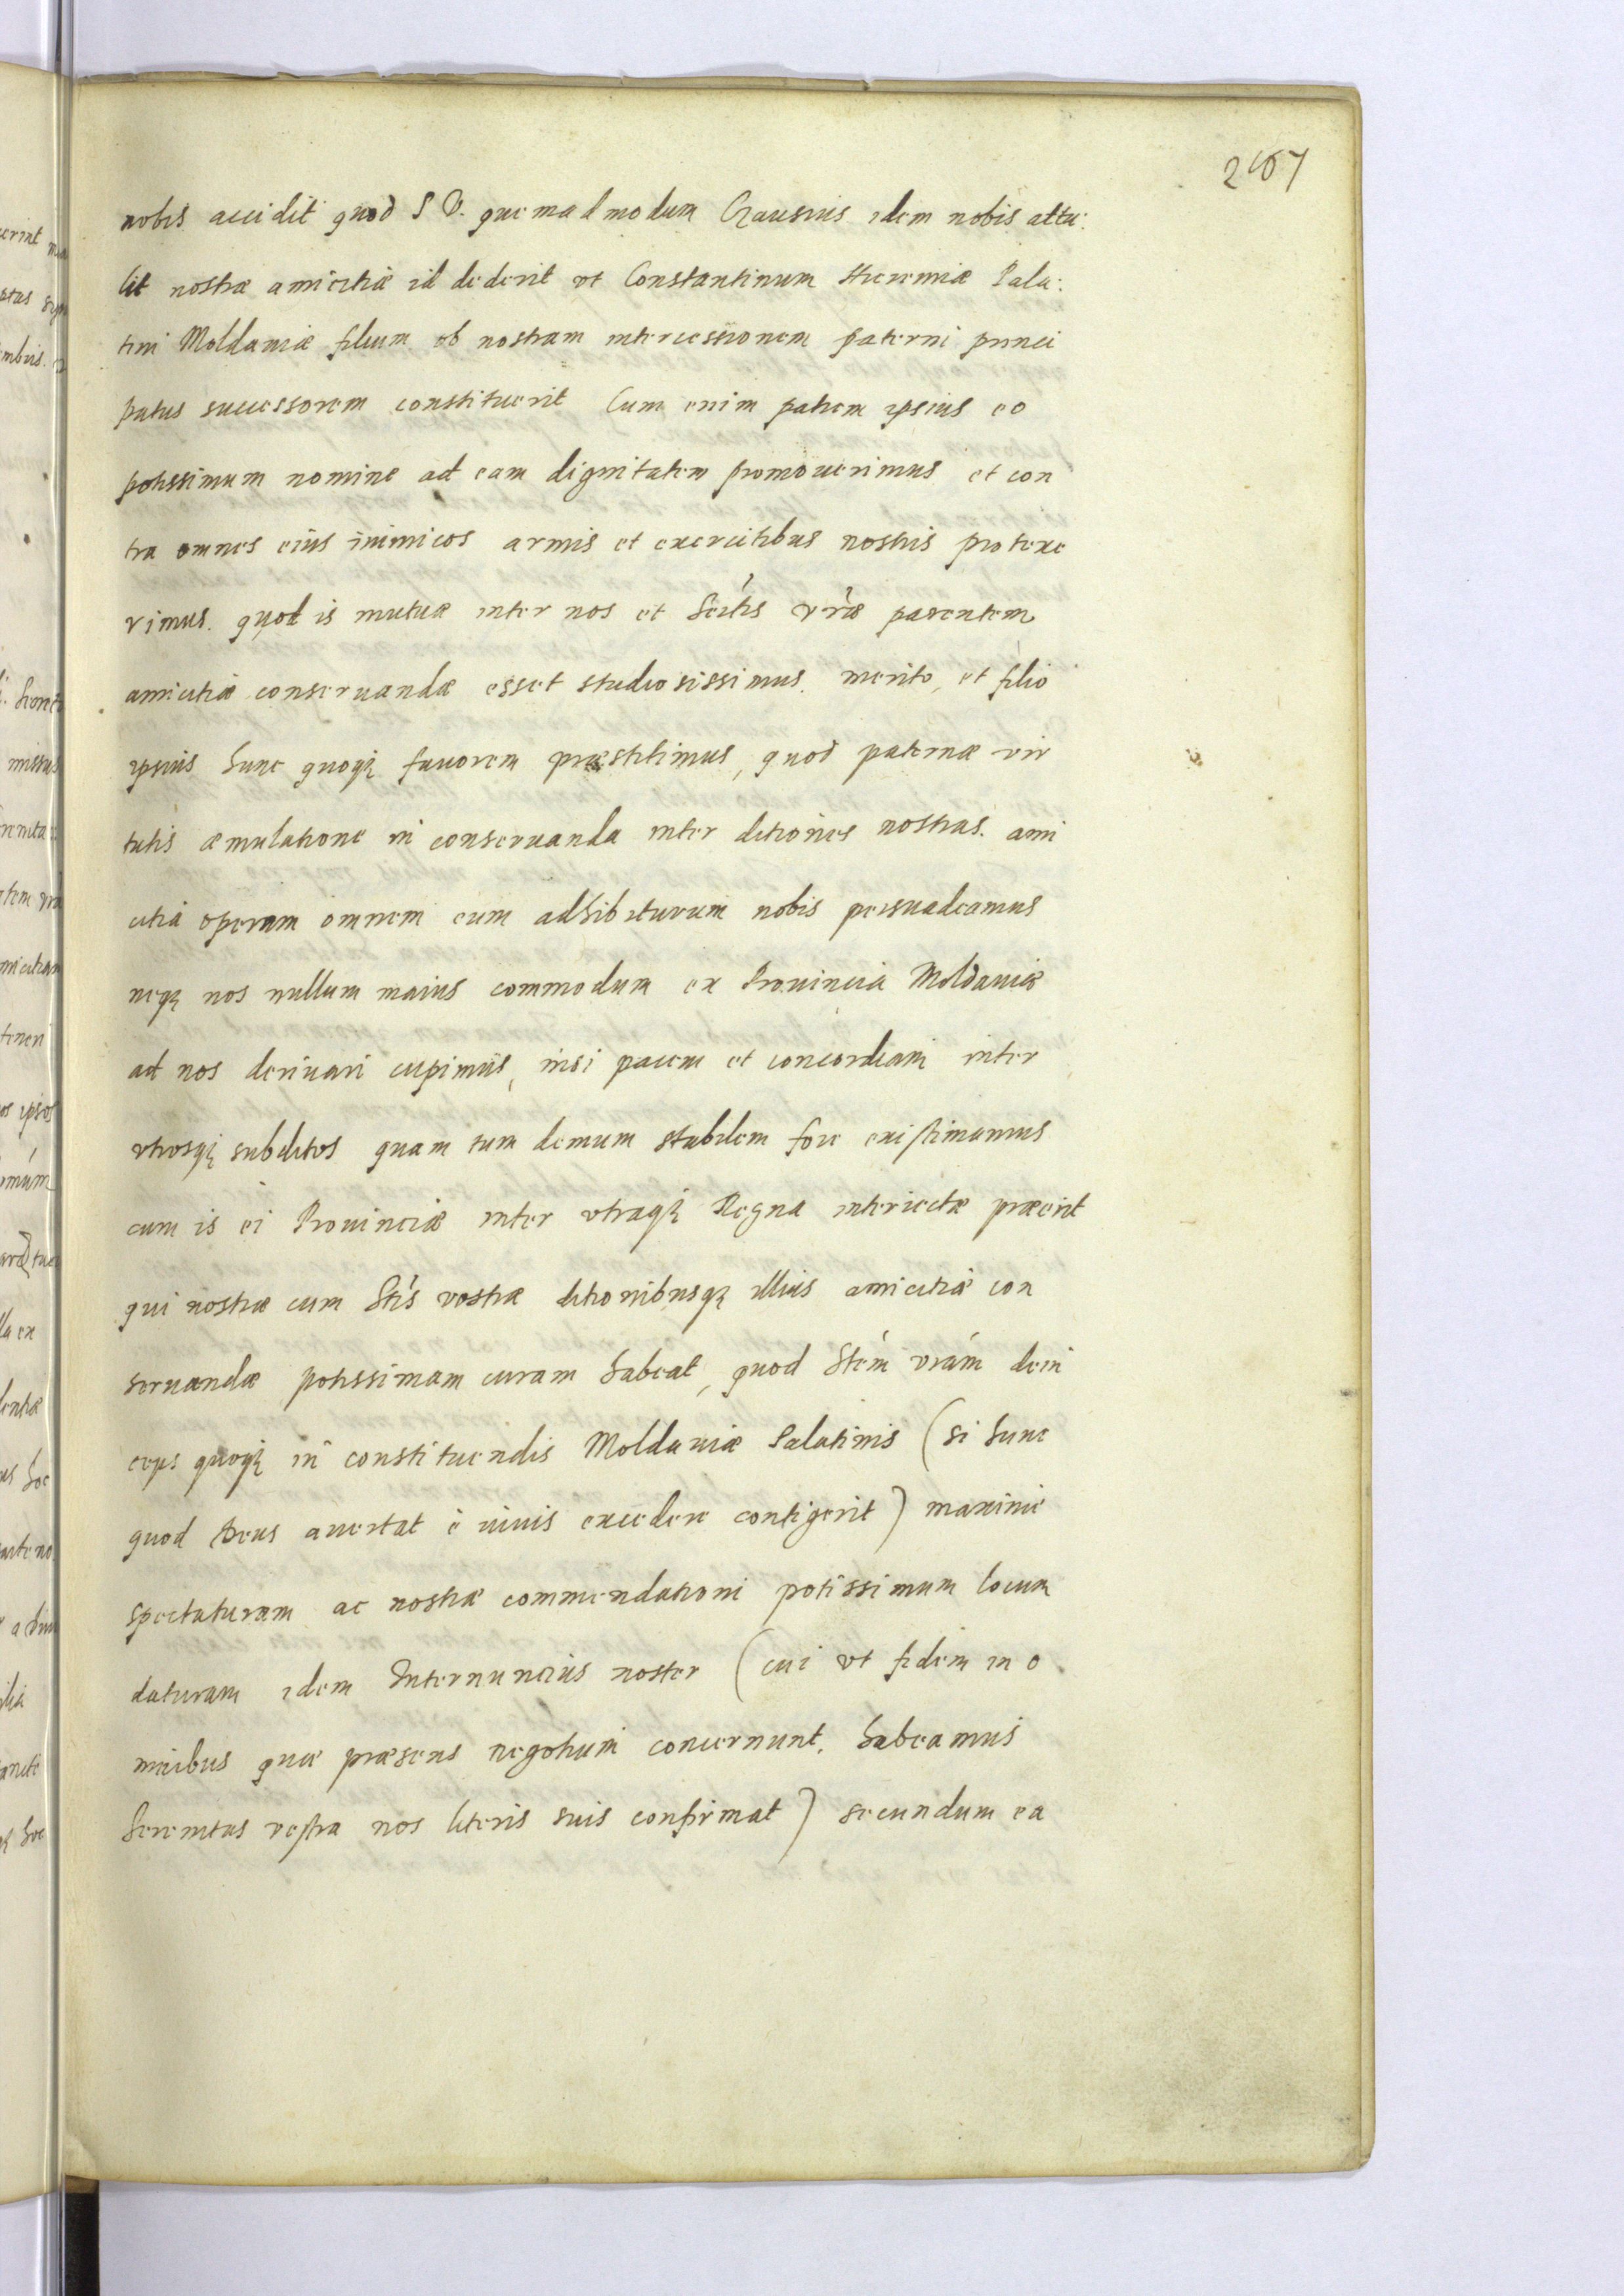 267
nobis accidit quod S V. quemadmodum Gzausius idem nobis attu:
lit nostræ amicitiæ id dederit vt Constantinum Hieremiæ Pala:
tini Moldauiæ filium ob nostram intercessionem paterni princi
patus successorem constituerit Cum enim patrem ipsius eo
potissimum nomine ad eam dignitatem promouerimus et con
tra omnes eius inimicos armis et exercitibus nostris protexe
rimus. quod is mutuæ inter nos et Sertis vræ parentem
amicitiæ conseruandæ esset studiosissimus. merito, et filio
ipsius hunc quoqȝ fauorem præstitimus, quod paternæ vir
tutis æmulatione in conseruanda inter ditiones nostras. ami
citia operam omnem eum adhibiturum nobis persuadeamus
neqȝ nos nullum maius commodum ex Prouincia Moldauiæ
ad nos deriuari cupimus, nisi pacem et concordiam inter
vtrosqȝ subditos quam tum demum stabilem fore existimamus
cum is ei Prouinciæ inter vtraqȝ Regna interiectæ præerit
qui nostræ cum Stis vestræ ditionibusqȝ illius amicitiæ con
seruandæ potissimam curam habeat, quod Stem vram dein
ceps quoqȝ in constituendis Moldauiæ Palatinis (si hunc
quod Deus auertat è viuis excedere contigerit) maxime
spectaturam ac nostræ commendationi potissimum locum
daturam idem Internuncius noster (cui vt fidem in o
mnibus quæ præsens negotium concernunt. habeamus
Serenitas vestra nos literis suis confirmat) secundum ea